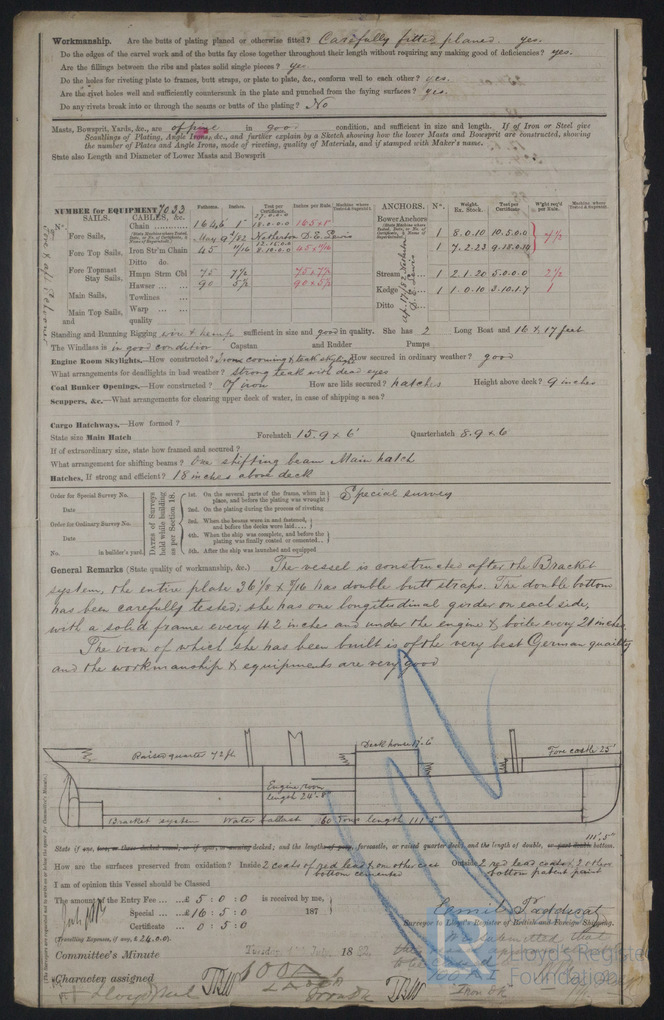 Workmanship. Are the butts of plating planed or otherwise fitted? Carefully fitted planed. yes.
Do the edges of the carvel work and of the butts fay close together throughout their length without requiring any making good of deficiencies? yes.
Are the fillings between the ribs and plates solid single pieces? yes.
Do the holes for riveting plate to frames, butt straps, or plate to plate, &c., conform well to each other? yes.
Are the rivet holes well and sufficiently countersunk in the plate and punched from the faying surfaces? yes.
Do any rivets break into or through the seams or butts of the plating? No
Masts, Bowsprit, Yards, &c., are of pine in good condition, and sufficient in size and length. If of Iron or Steel give
Scantlings of Plating, Angle Irons, &c., and further explain by a Sketch showing how the lower Masts and Bowsprit are constructed, showing
the number of Plates and Angle Irons, mode of riveting, quality of Materials, and if stamped with Maker's name.
State also Length and Diameter of Lower Masts and Bowsprit
NUMBER for EQUIPMENT 7033
SAILS. CABLES, &c. Fathoms. Inches. Test per Certificate. Inches per Rule. ANCHORS. Nos. Weight. Ex. Stock. Test per Certificate. Wght reqd per Rule.
No. Fore Sails, Chain 18.0.0.0 165 x 1" Bower Anchors 1 8.0.10 10.5.0.0
Netherton D. E. Lewis 1 7.2.23 9.18.0.10
Fore Top Sails, Iron Str'm Chain 45 11/16 45 x 11/16
Ditto do.
Fore Topmast Stay Sails, Hmpn Strm Cbl 75 7½ 75 x 7½ Stream 1 2.1.20 5.0.0.0 2½
Hawser 90 5½ 90 x 5½
Main Sails, Towlines Kedge 1 1.0.10 3.10.1.7 1
Main Top Sails, Warp Ditto
and quality
Standing and Running Rigging wire & hemp sufficient in size and good in quality. She has 2 Long Boat and 16 & 17 feet
The Windlass is in good condition Capstan and Rudder Pumps
Engine Room Skylights.—How constructed? Iron cooming & teak skylight How secured in ordinary weather? good
What arrangements for deadlights in bad weather? strong teak with dead eyes
Coal Bunker Openings.—How constructed? Of iron How are lids secured? hatches Height above deck? 9 inches
Scuppers, &c.—What arrangements for clearing upper deck of water, in case of shipping a sea?
Cargo Hatchways.—How formed?
State size Main Hatch Forehatch 15.9 x 6' Quarterhatch 8.9 x 6
If of extraordinary size, state how framed and secured?
What arrangement for shifting beams? One shifting beam Main hatch
Hatches, If strong and efficient? 18 inches above deck
Order for Special Survey No.
Date
Order for Ordinary Survey No.
Date
No. in builder's yard
Dates of Surveys held while building as per Section 18.
1st. On the several parts of the frame, when in place, and before the plating was wrought
2nd. On the plating during the process of riveting
3rd. When the beams were in and fastened, and before the decks were laid
4th. When the ship was complete, and before the plating was finally coated or cemented
5th. After the ship was launched and equipped
Special survey
General Remarks (State quality of workmanship, &c.) The vessel is constructed after the Bracket
system, the entire plate 36 1/8 x 7/16 has double butt straps. The double bottom
has been carefully tested; she has one longitudinal girder on each side,
with a solid frame every 42 inches and under the engine & boiler every 21 inches
The iron of which she has been built is of the very best German quality
and the workmanship & equipments are very good
Raised quarter 72 ft
Deck house 17'.6"
Fore castle 25'
Engine room
length 24'.8"
Bracket system Water ballast 60 Tons length 111'.5"
111'.5"
State if one, two, or three decked vessel, or if spar, or awning decked; and the lengths of poop, forecastle, or raised quarter deck, and the length of double, or part double bottom.
How are the surfaces preserved from oxidation? Inside 2 coats of red lead & on other coat Outside 2 red lead coats & 2 other
bottom cemented bottom patent paint
I am of opinion this Vessel should be Classed
The amount of the Entry Fee £ 5 : 0 : 0 is received by me,
Special £ 16 : 5 : 0 187
Certificate 0 : 5 : 0
(Travelling Expenses, if any, £ 24.0.0).
Surveyor to Lloyd's Register of British and Foreign Shipping.
Committee's Minute Tuesday, July, 18 82
Character assigned 100A
Lloyd's Register
Foundation